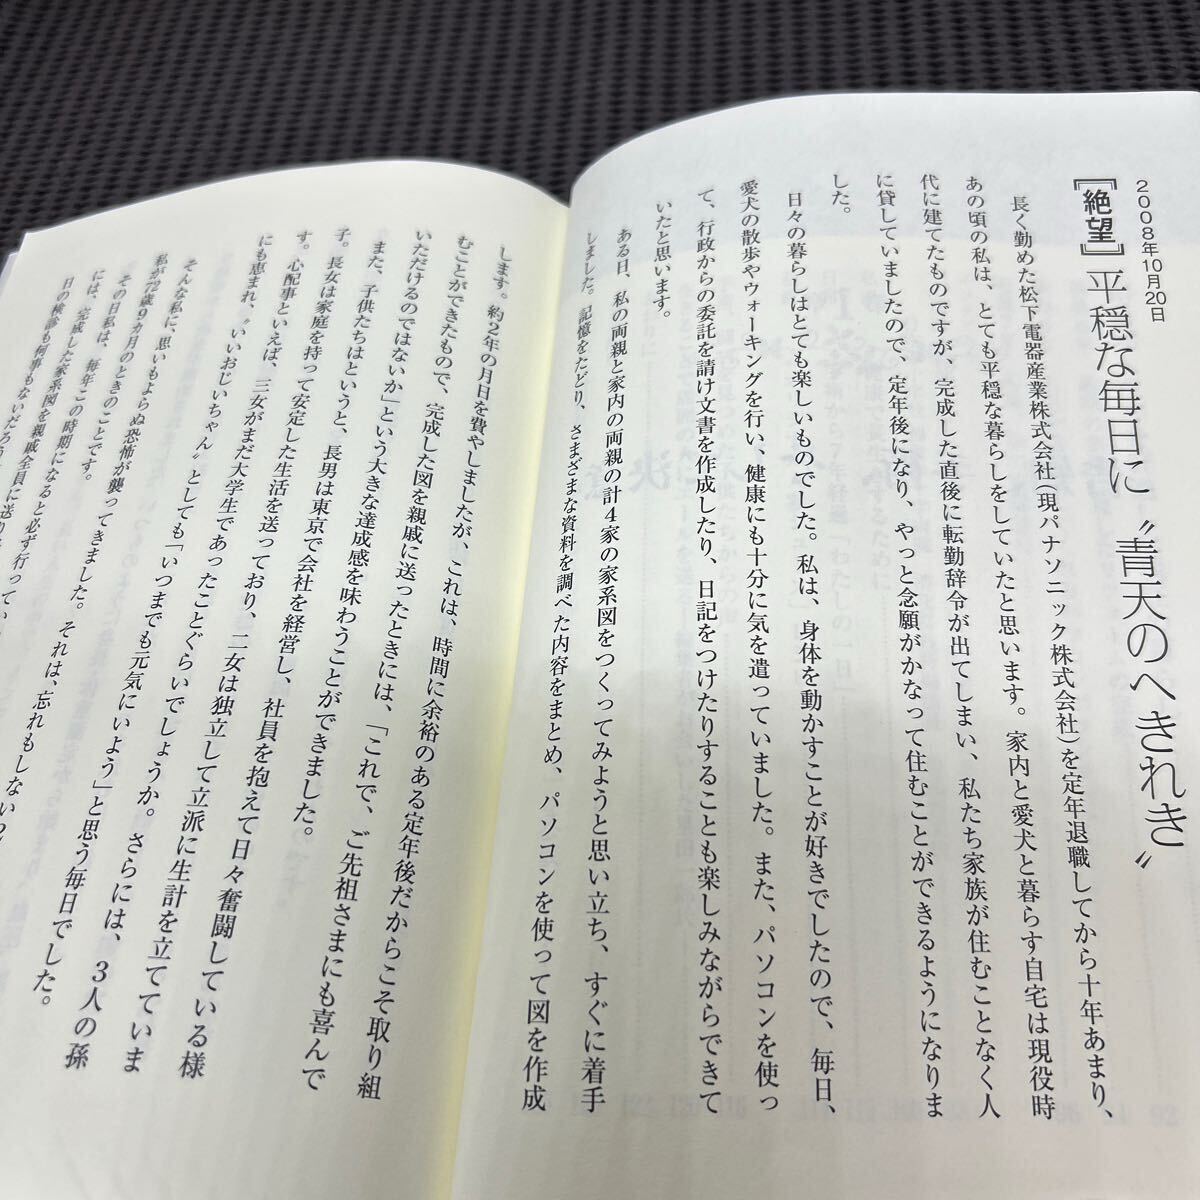 2008年10月20日
【絶望】平穏な毎日に〝青天のへきれき〟
長く勤めた松下電器産業株式会社(現パナソニック株式会社)を定年退職してから十年あまり、
あの頃の私は、とても平穏な暮らしをしていたと思います。家内と愛犬と暮らす自宅は現役時
代に建てたものですが、完成した直後に転勤辞令が出てしまい、私たち家族が住むことなく人
に貸していましたので、定年後になり、やっと念願がかなって住むことができるようになりま
した。
日々の暮らしはとても楽しいものでした。私は、身体を動かすことが好きでしたので、毎日、
愛犬の散歩やウォーキングを行い、健康にも十分に気を遣っていました。また、パソコンを使っ
て、行政からの委託を請け文書を作成したり、日記をつけたりすることも楽しみながらできて
いたと思います。
ある日、私の両親と家内の両親の計4家の家系図をつくってみようと思い立ち、すぐに着手
しました。記憶をたどり、さまざまな資料を調べた内容をまとめ、パソコンを使って図を作成
します。約2年の月日を費やしましたが、これは、時間に余裕のある定年後だからこそ取り組
むことができたもので、完成した図を親戚に送ったときには、「これで、ご先祖さまにも喜んで
いただけるのではないか」という大きな達成感を味わうことができました。
また、子供たちはというと、長男は東京で会社を経営し、社員を抱えて日々奮闘している様
子。長女は家庭を持って安定した生活を送っており、二女は独立して立派に生計を立てていま
す。心配事といえば、三女がまだ大学生であったことぐらいでしょうか。さらには、3人の孫
にも恵まれ、〝いいおじいちゃん〟としても「いつまでも元気にいよう」と思う毎日でした。
そんな私に、思いもよらぬ恐怖が襲ってきました。それは、忘れもしない
私が72歳9カ月のときのことです。
その日私は、毎年この時期になると必ず行ってい
には、完成した家系図を親戚全員に送り
日の検診も何事もないだろう